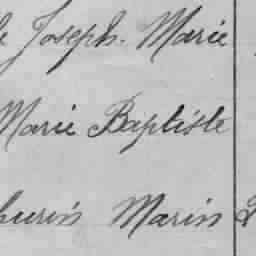 Joseph. Marie
Marie Baptiste
hurin Marin